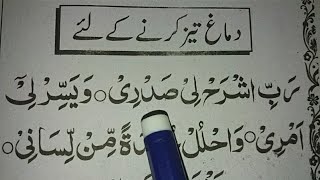 دماغ تیز کرنے کے لئے
رَبِّ اشْرَحْ لِیْ صَدْرِیْ ○ وَیَسِّرْ لِیْ
اَمْرِیْ ○ وَاحْلُلْ مِّنْ لِّسَانِیْ ○